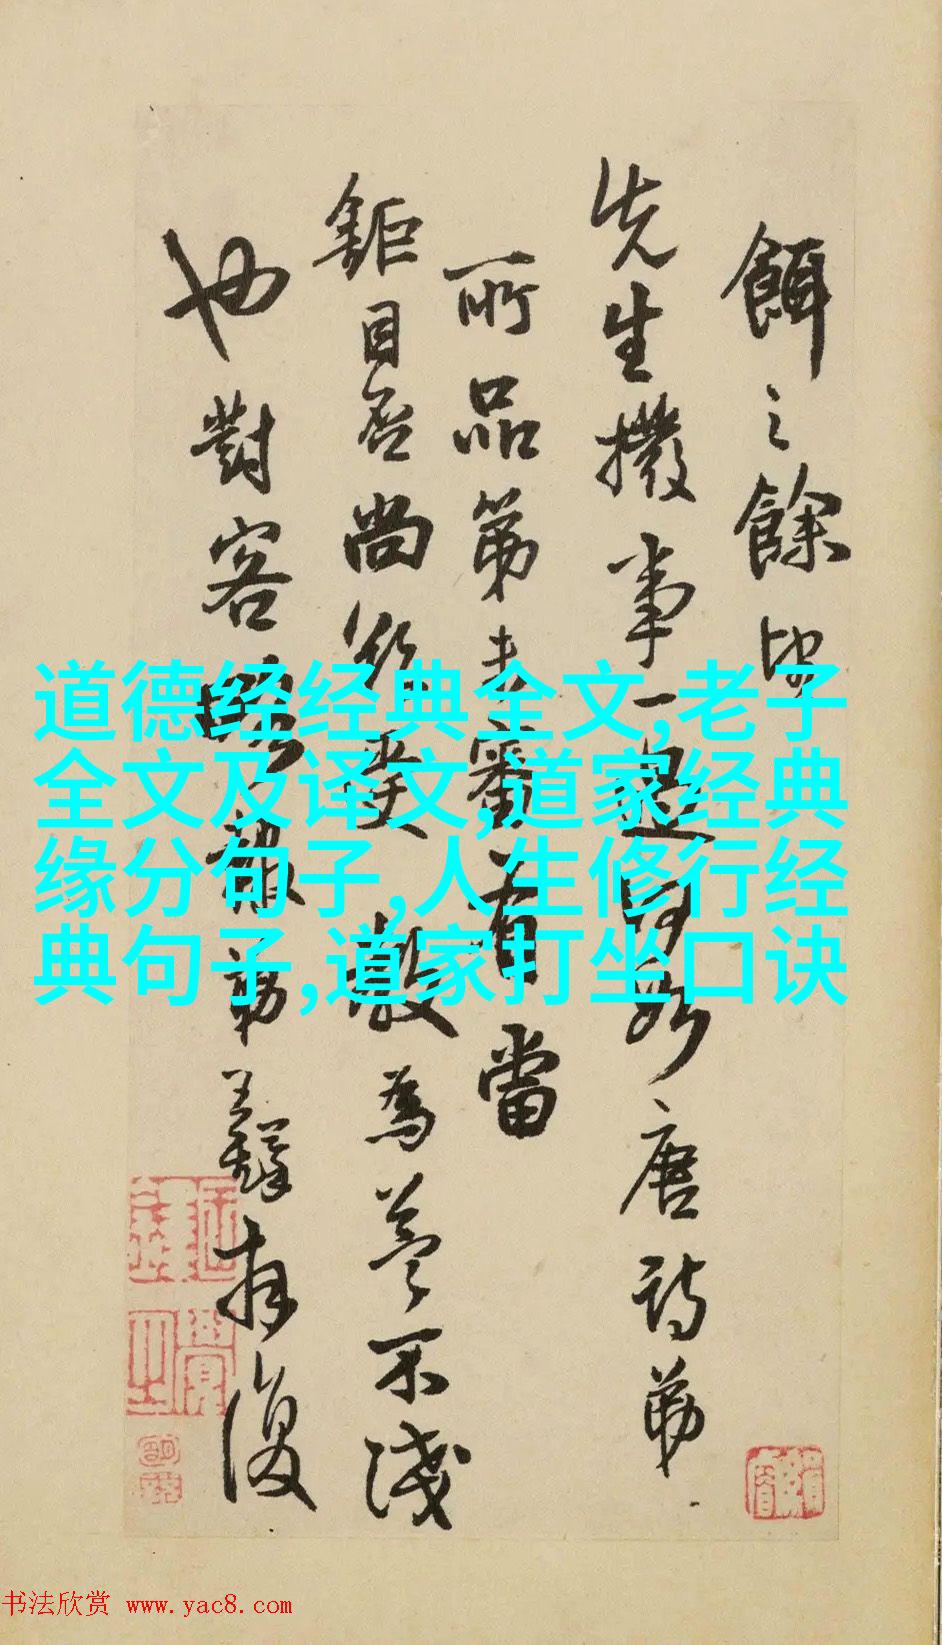 餌之餘
先生撥事一過唐詩弟
所品第未審有當
鉅目否尚祈教為不淺
也對客報弟王鐸復
道德经经典全文,老子
全文及译文,道家经典
缘分句子,人生修行经
典句子,道家打坐口诀
书法欣赏 www.yac8.com